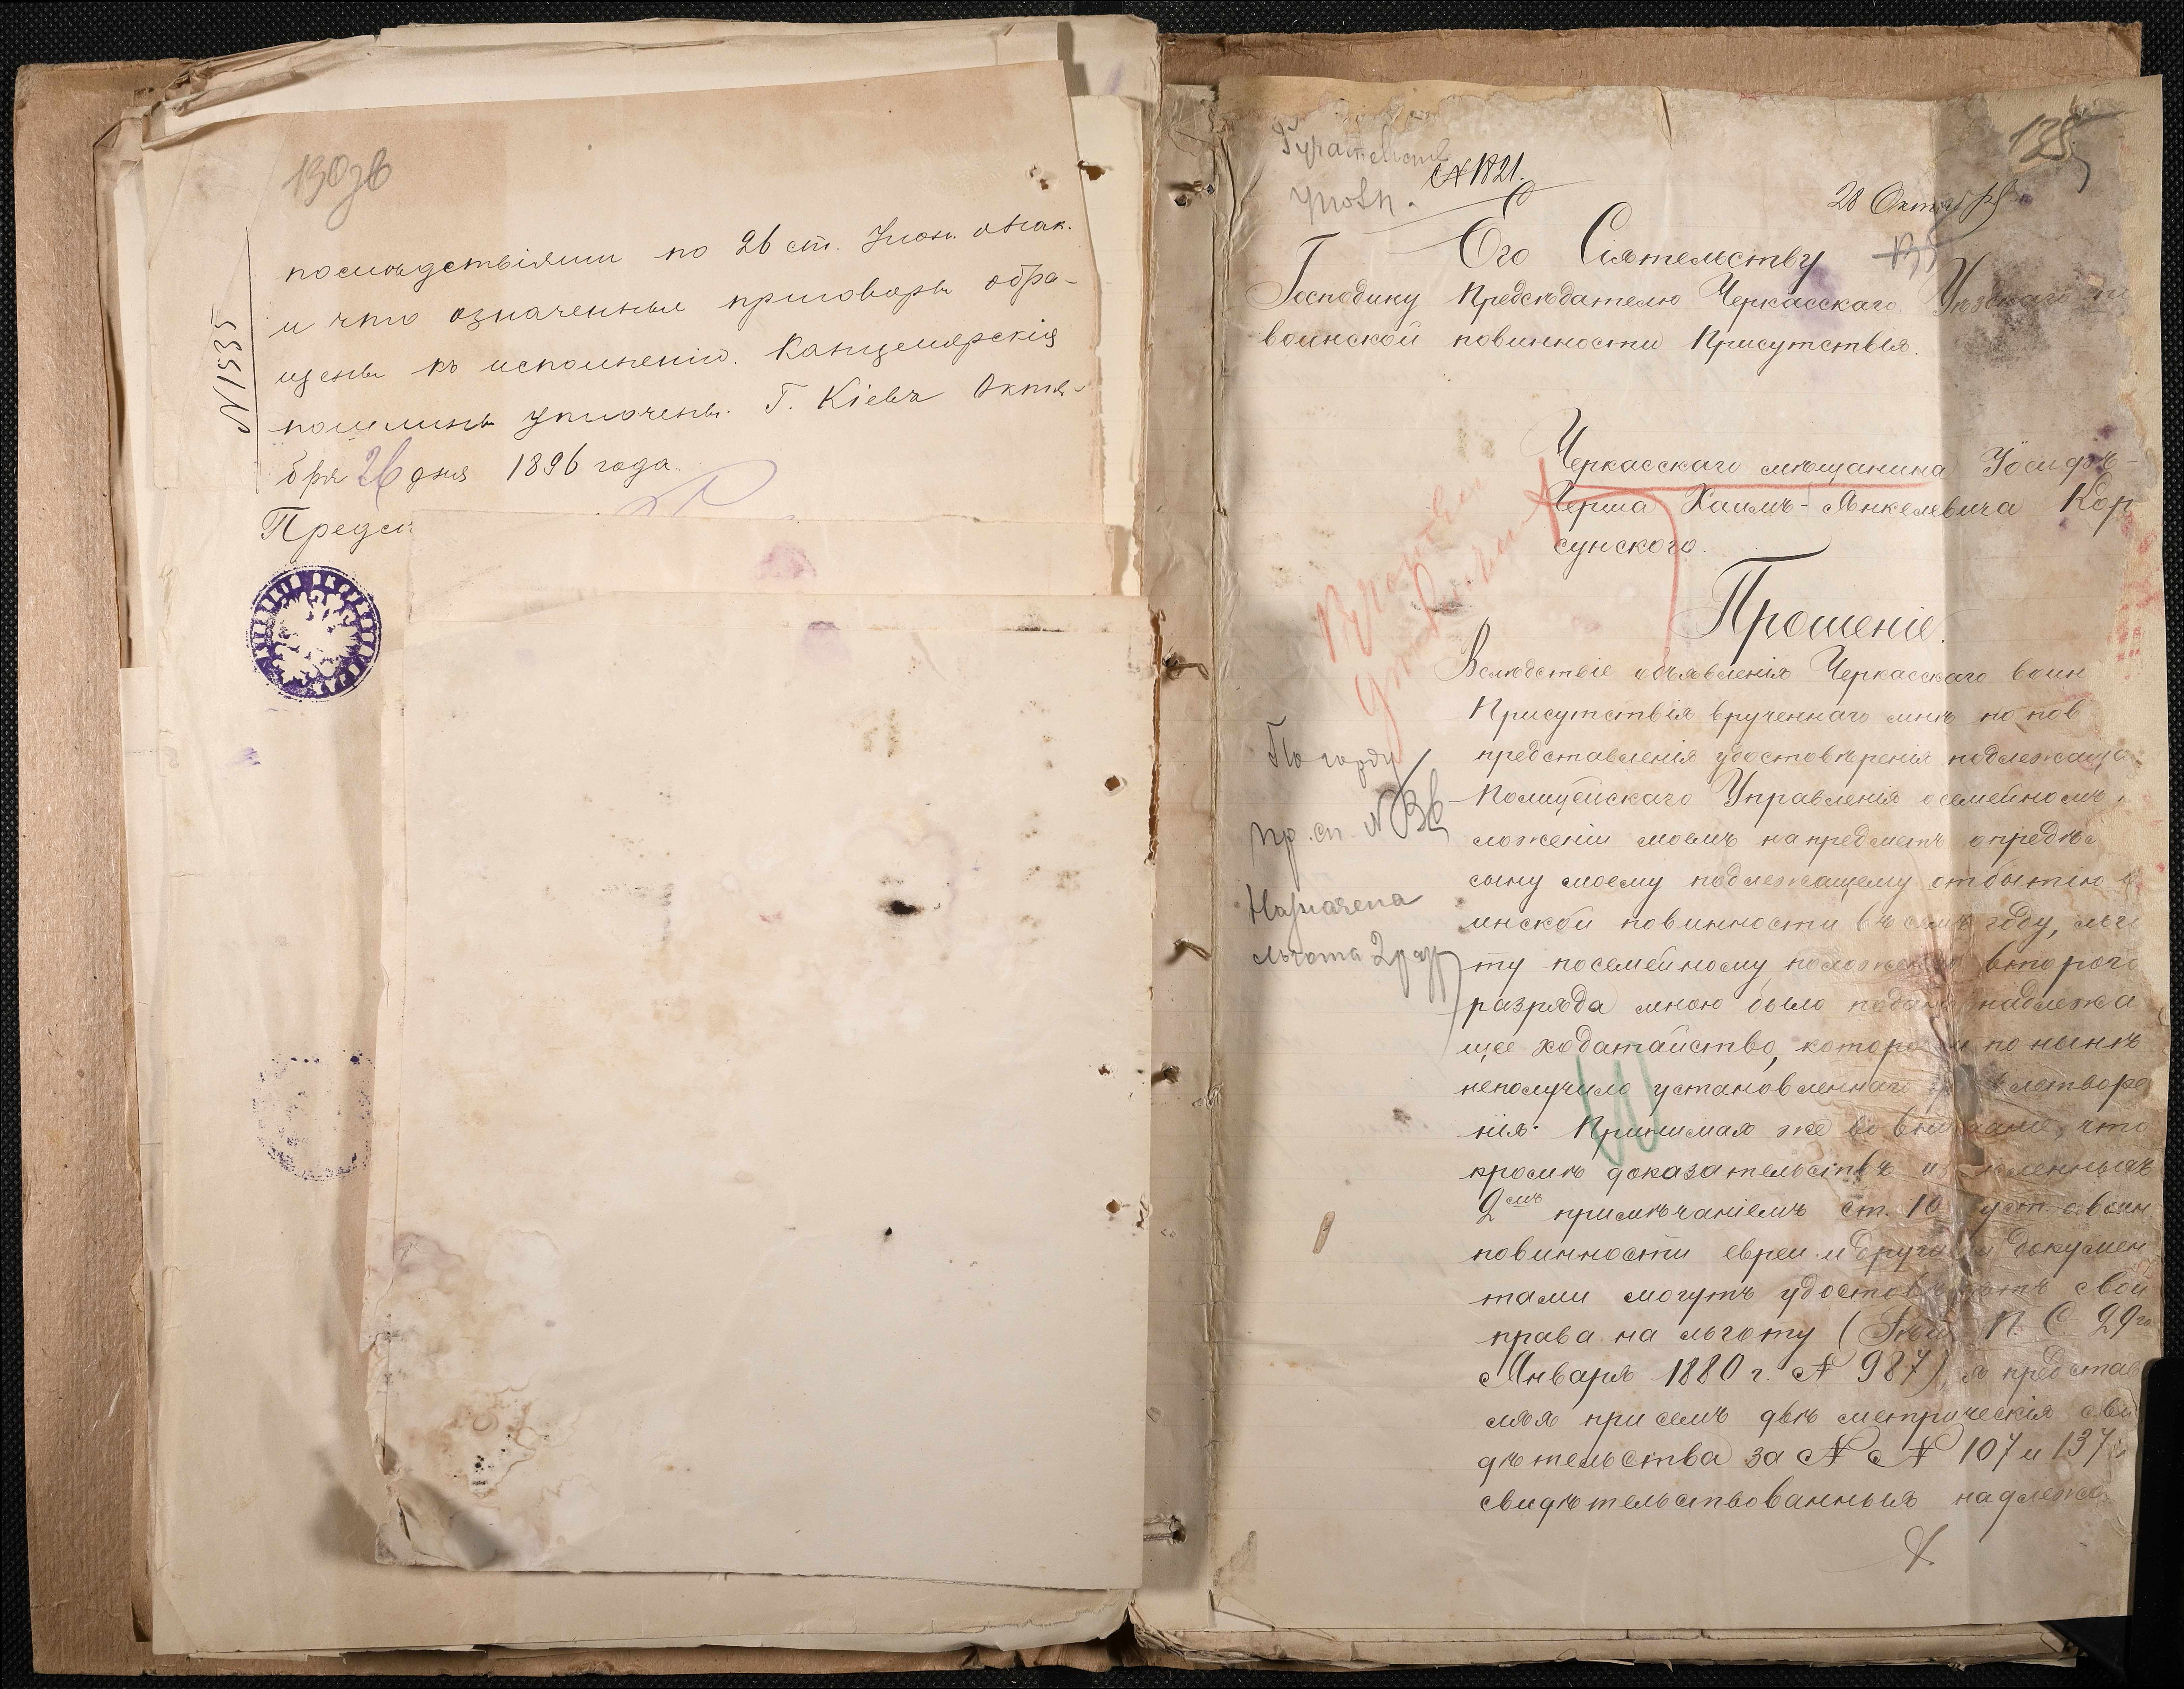 130 об
№ 1535
последствіями по 26 ст. Улож. о Нак.
и что означенные приговоры обра-
щены къ исполненію. Канцелярскія
пошлины уплочены. Г. Кіевъ Октя-
бря 26 дня 1896 года.
Предсѣ
135
№ 1821.
28 Октяб
Его Сіятельству
Господину Предсѣдателю Черкасскаго Уѣзднаго по
воинской повинности Присутствія.
Черкасскаго мѣщанина Іосифъ-
Герша Хаимъ-Янкелевича Кор
сунского.
Прошеніе.
Вслѣдствіе объявленія Черкасскаго воин
Присутствія врученнаго мнѣ по пов
представленія удостовѣренія подлежаща
Полицейскаго Управленія о семейномъ п
ложеніи моемъ на предметъ опредѣл
сыну моему подлежащему отбытію в
инской повинности въ семъ году, льго
ту по семейному положенію второго
разряда мною было подано надлежа
щее ходатайство, которое и по нынѣ
неполучило установленнаго удовлетворе
нія. Принимая же во вниманіе, что
кромѣ доказательствъ и
2мъ примѣчаніемъ ст. 10 уст. о воин
повинности евреи и другими докумен
тами могутъ удостовѣрять свои
права на льготу ( П. С. 29го
Января 1880 г. № 987), я представ
ляя при семъ двѣ метрическія сви
дѣтельства за № № 107 и 137
свидѣтельствованныя надлежа
По городу
пр. сп. № 36
Назначена
льгота 2 раз